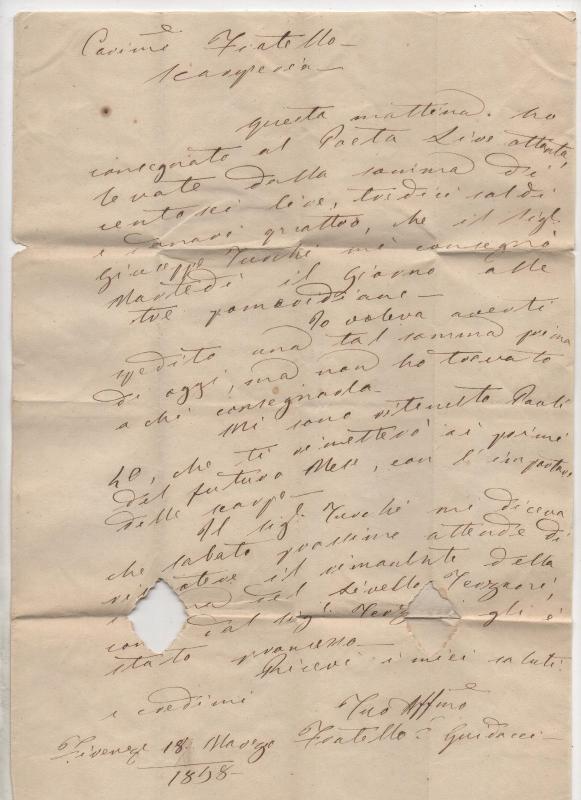 Carime Fratello
Scarperia
Questa mattina ho
consegnato al Posta Lire ottanta,
levate dalla somma di
cento sei lire, tredici soldi
e danari quattro, che il Sigl
Giuseppe Turchi mi consegnò
Martedì il Giorno alle
tre pomeridiane
Io voleva averti
spedito una tal somma prima
di oggi, ma non ho trovato
a chi consegnarla
Mi sono ritenuto
che ti rimetterò ai primi
del futuro Mese, con l'importare
delle scarpe
Il Sigl Turchi mi diceva
che sabato prossimo attende di
riscuotere il rimanente della
del Livello Terzani,
come dal Sigl gli è
stato promesso
Ricevi i miei saluti
e credimi
Tuo Affmo
Fratello Guidacci
Firenze 18 Marzo
1858